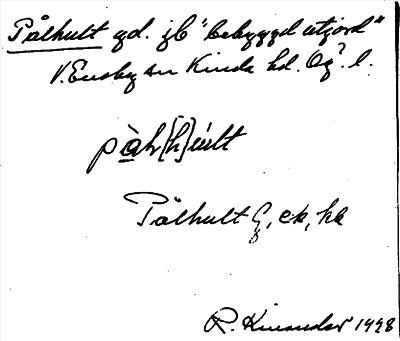 Pålhult gd. jb "bebyggd utjord"
V. Eneby sn Kinda hd. Ög. l.
pàl[h]ult
Pålhult G, ek, hk
R. Kinander 1928